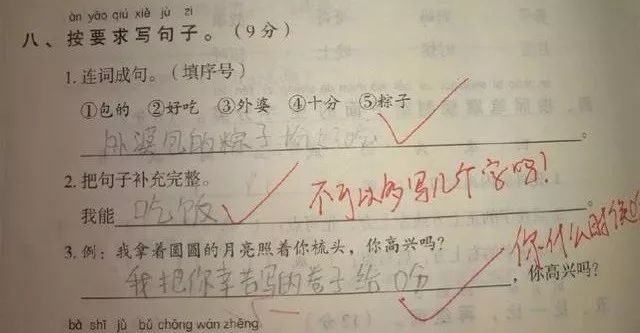 àn yāo qiú xiě jù zi
八、按要求写句子。(9分)
1. 连词成句。(填序号)
①包的 ②好吃 ③外婆 ④十分 ⑤粽子
外婆包的粽子 好吃。
2. 把句子补充完整。
我能吃饭。 不可以多写几个字吗!
3. 例:我拿着圆圆的月亮照着你梳头,你高兴吗?
我把你辛苦写的卷子给吃,你高兴吗? 你什么时候
bǎ shī jù bǔ chōng wán zhěng